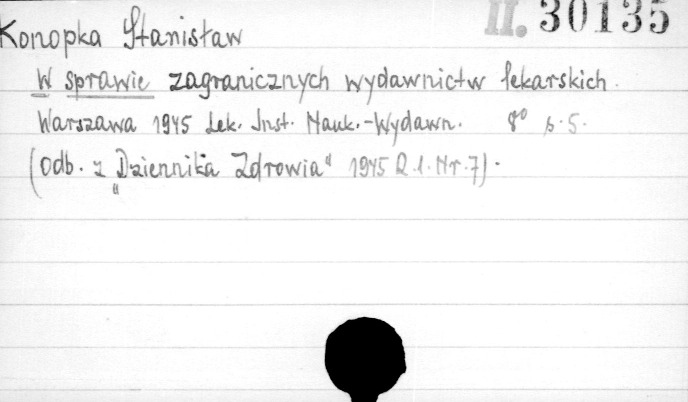 II. 30135
Konopka Stanisław
W sprawie zagranicznych wydawnictw lekarskich.
Warszawa 1945 Lek. Inst. Nauk.-Wydawn. 8° s. 5.
(Odb. z „Dziennika Zdrowia" 1945 R.1. Nr. 7).